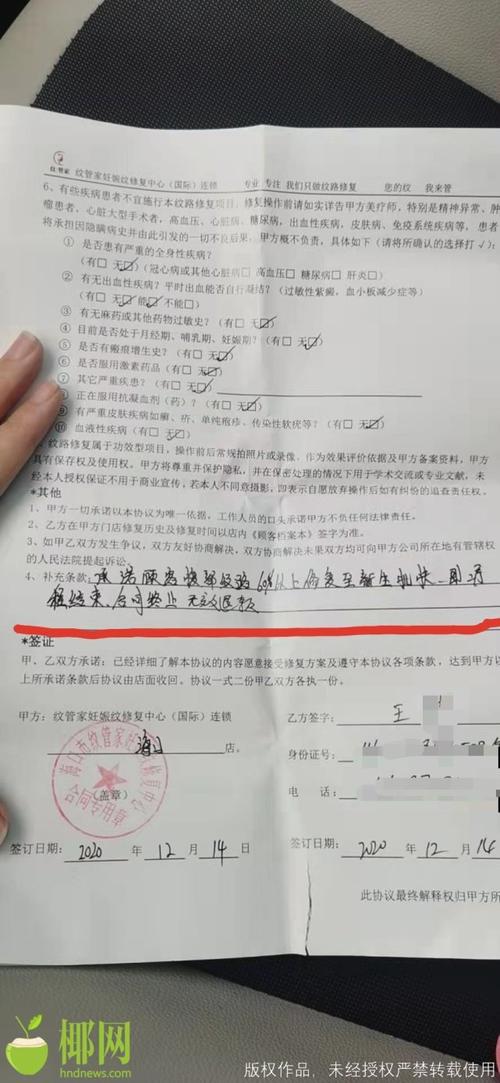 纹管家 纹管家妊娠纹修复中心（国际）连锁 专业 专注 我们只做纹路修复 您的纹 我来管
6、有些疾病患者不宜施行本纹路修复项目，修复操作前请如实详告甲方美疗师，特别是精神异常、肿
瘤患者、心脏大型手术者，高血压、心脏病、糖尿病、出血性疾病，皮肤病、免疫系统疾病等，患者
将承担因隐瞒病史并由此引发的一切不良后果，甲方概不负责，具体如下（请将所确认的选择打√）：
① 是否患有严重的全身性疾病？
（有□ 无☑）（冠心病或其他心脏病□ 高血压□ 糖尿病□ 肝炎□）
② 有无出血性疾病？平时出血能否自行凝结？（过敏性紫癜，血小板减少症等）
（有□ 无☑ 能☑ 不能□）
③ 有无麻药或其他药物过敏史？（有□ 无☑）
④ 目前是否处于月经期、哺乳期、妊娠期？（有□ 无☑）
⑤ 是否有瘢痕增生史？（有□ 无☑）
⑥ 是否服用激素药品（有□ 无☑）
⑦ 其它严重疾患？（有□ 无☑）
正在服用抗凝血剂（药）？（有□ 无☑）
有严重皮肤疾病如癣、疥、单纯疱疹、传染性软疣等？（有□ 无☑）
⑩ 血液性疾病（有□ 无☑）
纹路修复属于功效型项目，操作前后常规拍照片或录像，作为效果评价依据及甲方备案资料，甲方
具有保存权及使用权。甲方将尊重并保护隐私，并在保密处理的情况下用于学术交流或专业文献，未
经本人授权保证不用于商业宣传，若本人不同意摄影，即表示自愿放弃操作后如有纠纷的追查责任权。
*其他
1、甲方一切承诺以本协议为唯一依据，工作人员的口头承诺甲方不负任何法律责任。
2、乙方在甲方门店修复历史及修复时间以店内《顾客档案本》签字为准。
3、如甲乙双方发生争议，双方友好协商解决，双方协商解决未果双方均可向甲方公司所在地有管辖权
的人民法院提起诉讼。
4、补充条款：承诺顾客 60%以上修复至新生肌肤
程结束、合同终止 无 退款
*签证
甲、乙双方承诺：已经详细了解本协议的内容愿意接受修复方案及遵守本协议各项条款，达到甲方以
上所承诺条款后协议由店面收回。协议一式二份甲乙双方各执一份。
甲方：纹管家妊娠纹修复中心（国际）连锁
乙方签字： 王
海口 店。
身份证号：
（盖章）
合同专用章
电 话：
签订日期： 2020 年 12 月 14 日
签订日期： 2020 年 12 月 14
此协议最终解释权归甲方所
椰网
hndnews.com
版权作品，未经授权严禁转载使用